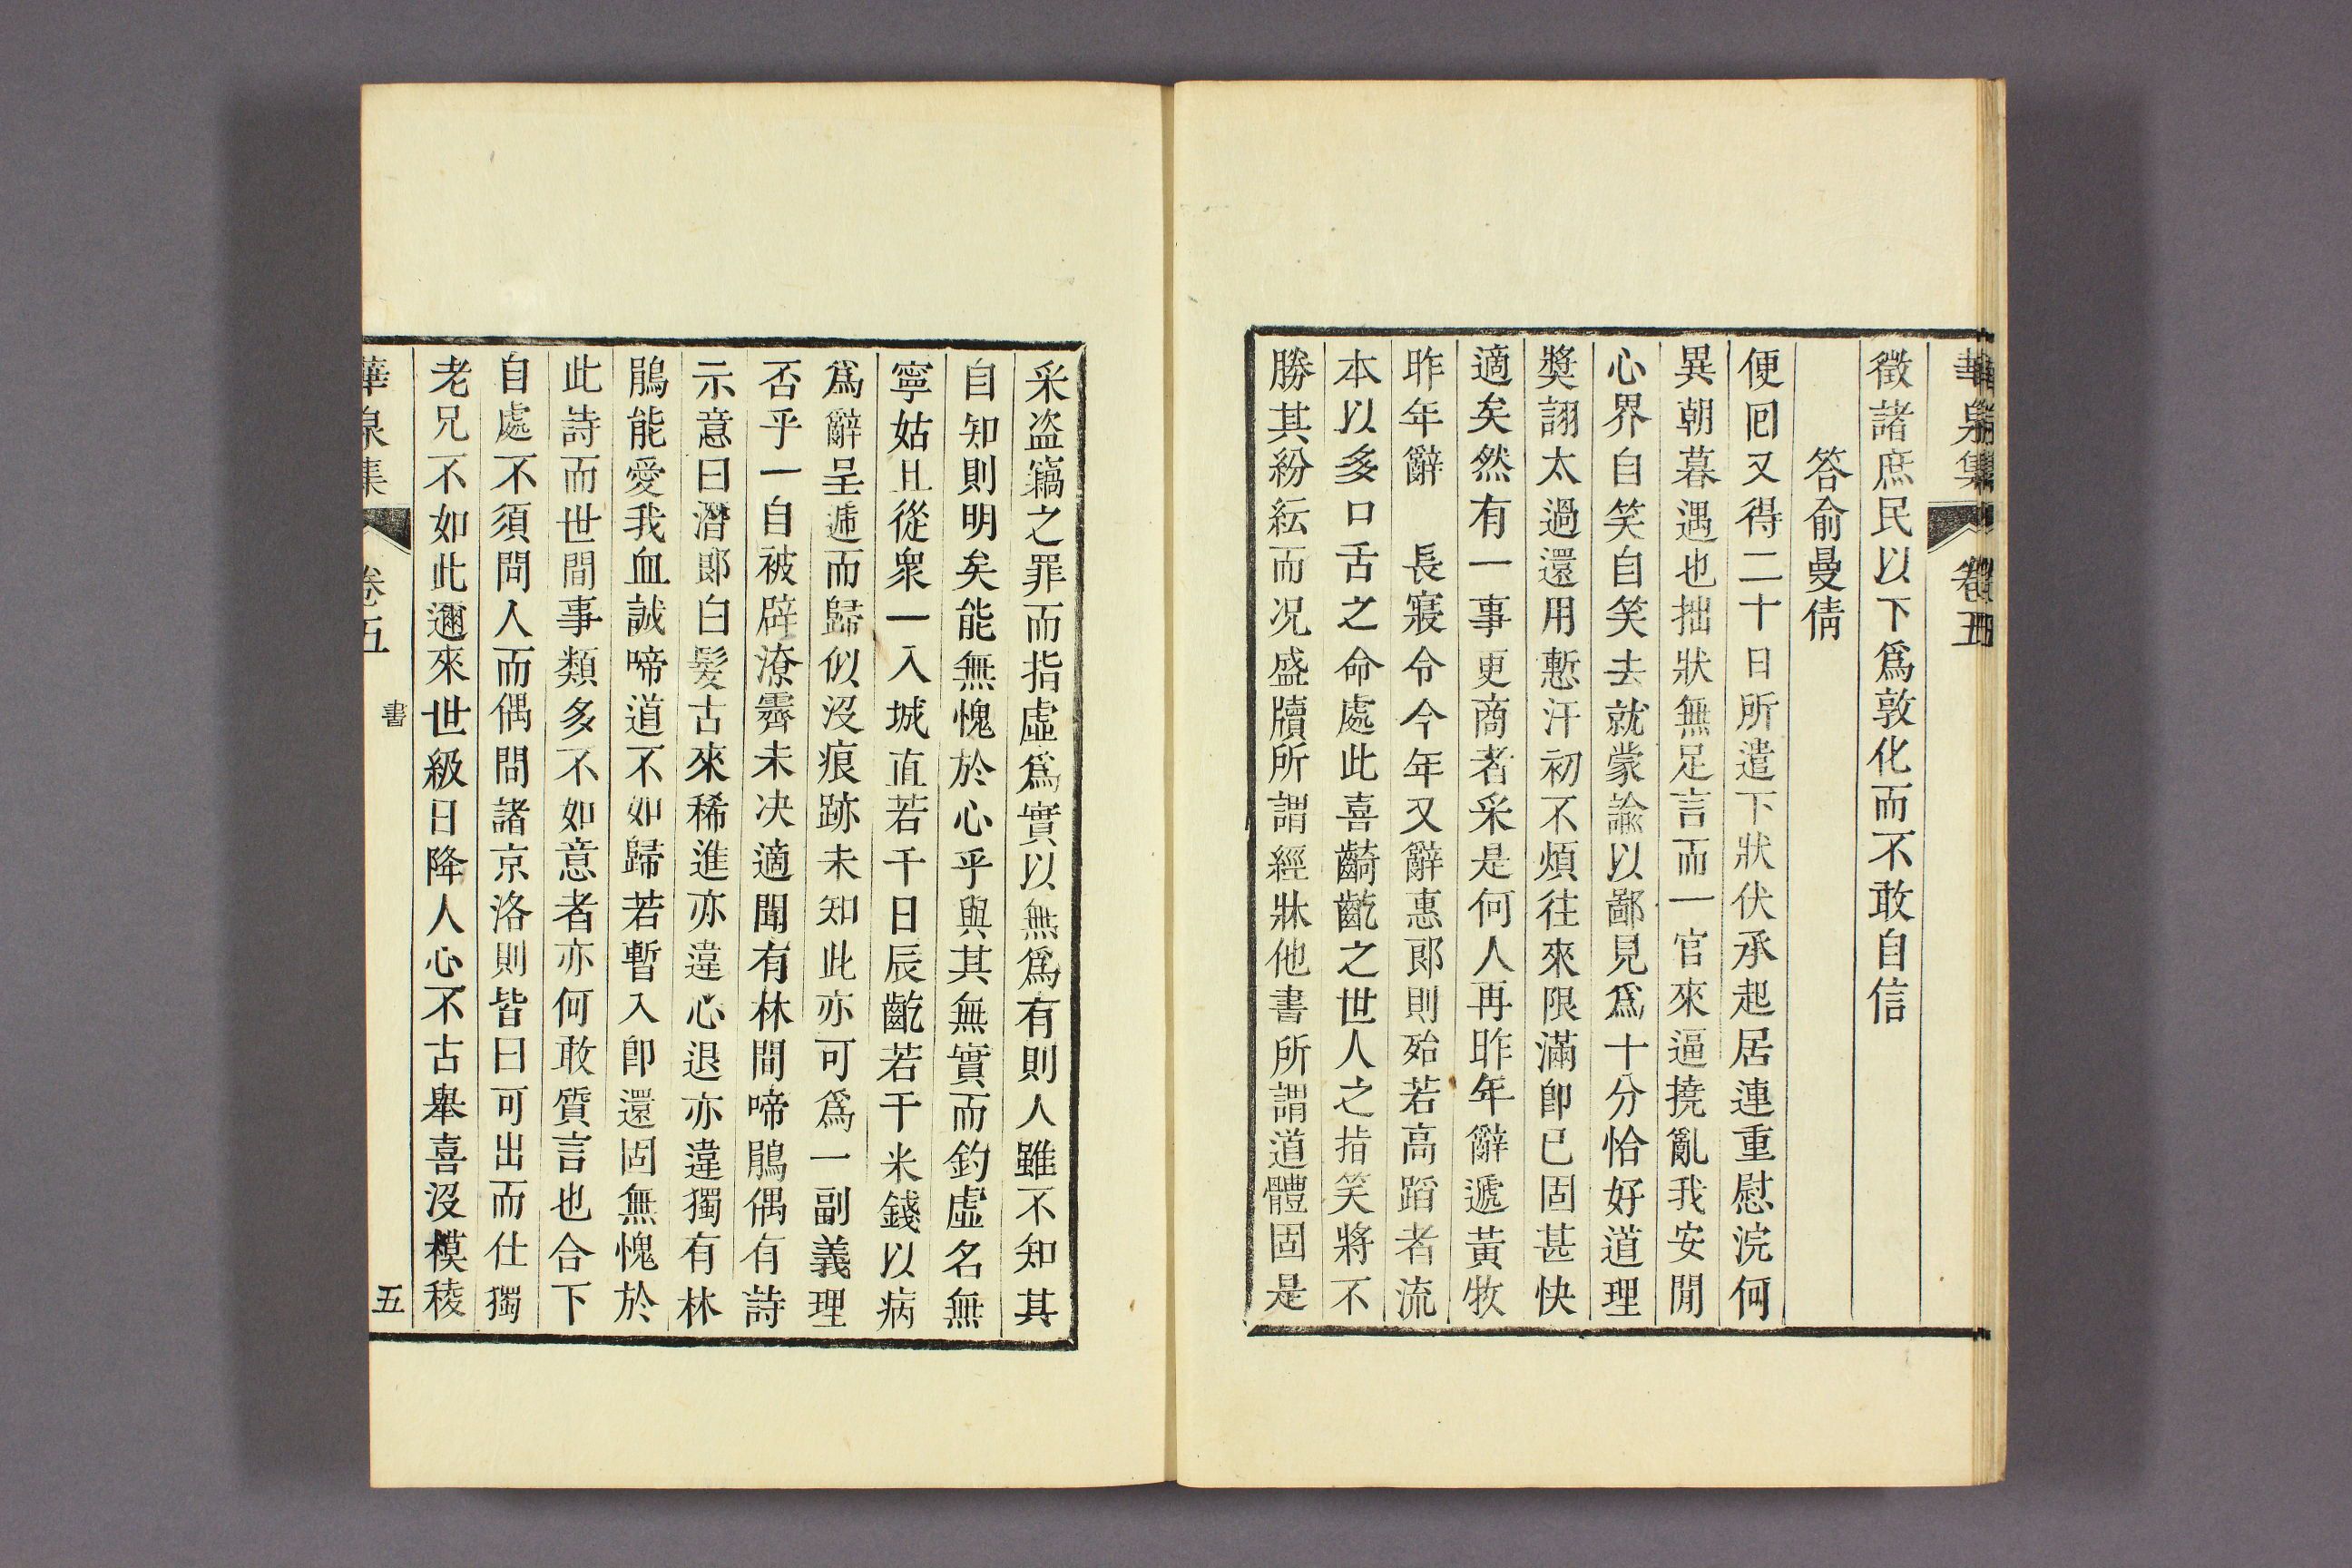 華泉集 卷五
徵諸庶民以下爲敦化而不敢自信
答俞曼倩
便囘又得二十日所遣下狀伏承起居連重慰浣何
異朝暮遇也拙狀無足言而一官來逼撓亂我安閒
心界自笑自笑去就蒙諭以鄙見爲十分恰好道理
奬詡太過還用慙汗初不煩往來限滿卽已固甚快
適矣然有一事更商者采是何人再昨年辭遞黃牧
昨年辭 長寢令今年又辭惠郞則殆若高蹈者流
本以多口舌之命處此喜齮齕之世人之指笑將不
勝其紛紜而况盛牘所謂經牀他書所謂道體固是
采盜竊之罪而指虛爲實以無爲有則人雖不知其
自知則明矣能無愧於心乎與其無實而釣虛名無
寧姑且從衆一入城直若干日辰齕若干米錢以病
爲辭呈遞而歸似沒痕跡未知此亦可爲一副義理
否乎一自被辟潦霽未决適聞有林間啼鵑偶有詩
示意曰潛郞白髮古來稀進亦違心退亦違獨有林
鵑能愛我血誠啼道不如歸若暫入卽還固無愧於
此詩而世間事類多不如意者亦何敢質言也合下
自處不須問人而偶問諸京洛則皆曰可出而仕獨
老兄不如此邇來世級日降人心不古舉喜沒模稜
華泉集 卷五 書 五